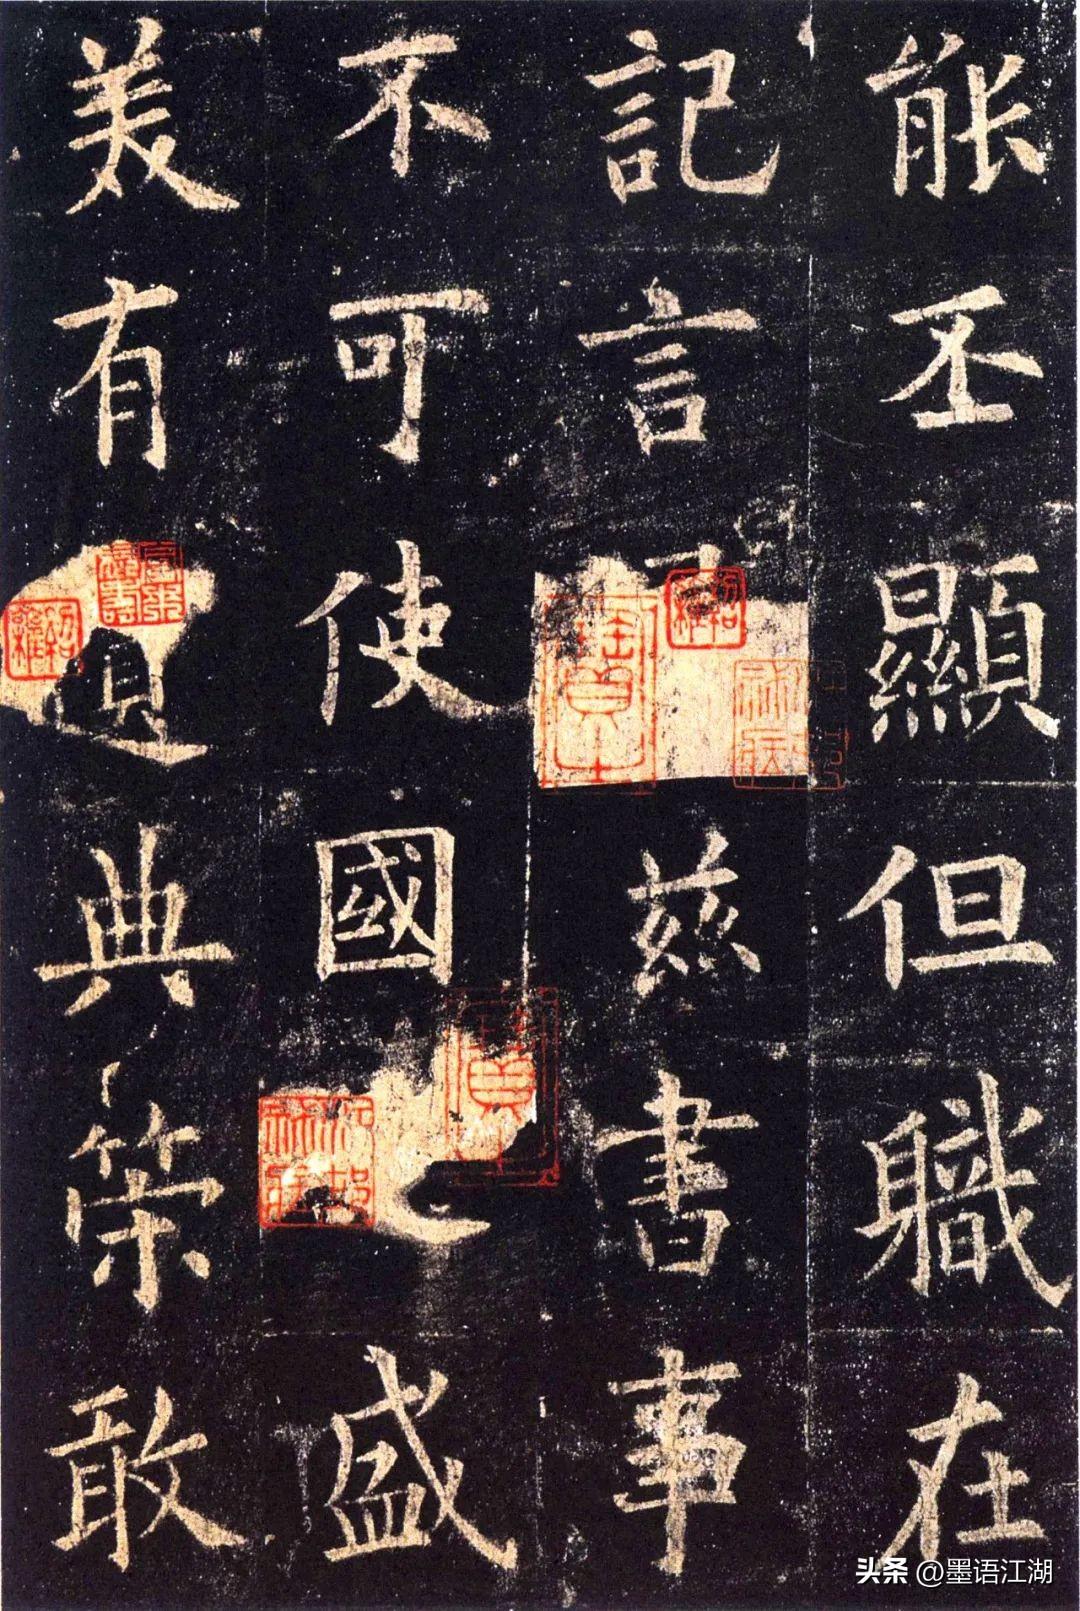 能丕顯但職在
記言茲書事
不可使國盛
美有遺典策敢
头条 @墨语江湖